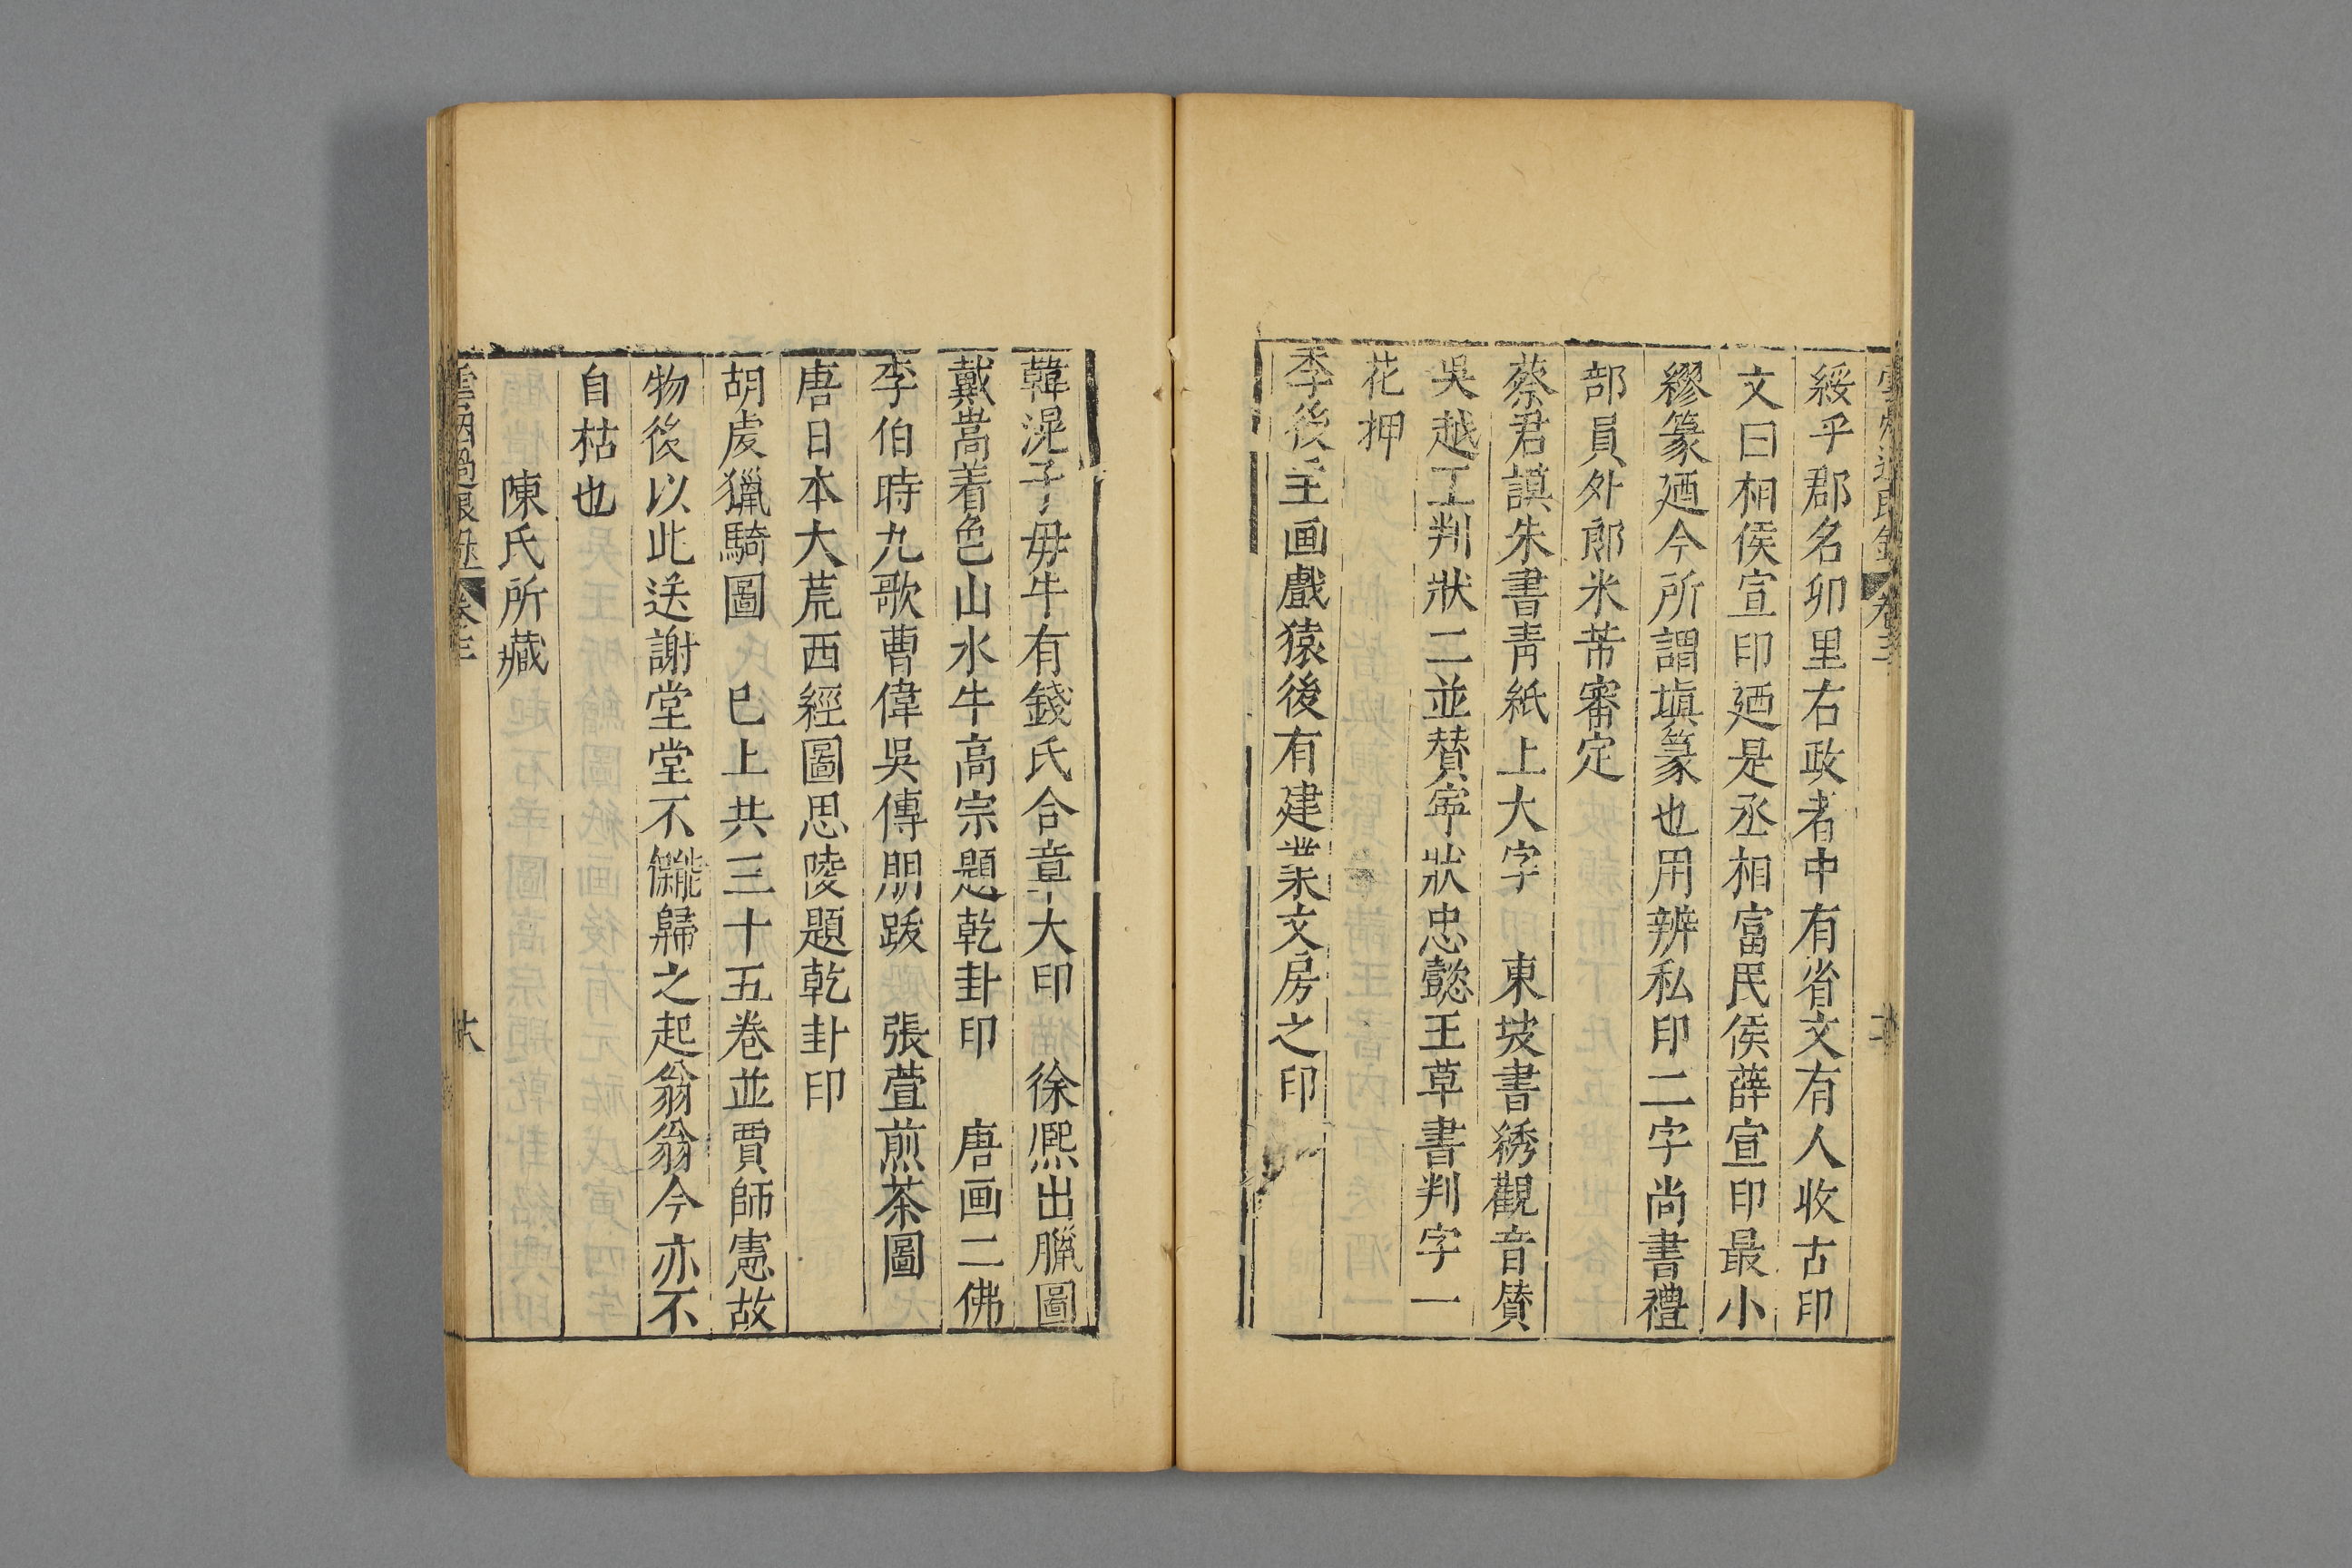 綏乎郡名卯里右政者中有省文有人收古印
文曰相侯宣印廼是丞相富民侯薛宣印最小
繆篆廼今所謂塡篆也用辨私印二字尚書禮
部員外郎米芾審定
蔡君謨朱書青紙上大字　東坡書綉觀音賛
吳越王判狀二並賛寜狀忠懿王草書判字一
花押
李後主画戲猿後有建業文房之印
韓滉子毋牛有錢氏合章大印　徐熙出臘圖
戴嵩着色山水牛高宗題乾卦印　唐画二佛
李伯時九歌曹偉吳傳朋跋　張萱煎茶圖
唐日本大荒西經圖思陵題乾卦印
胡虔獵騎圖　巳上共三十五巻並賈師憲故
物後以此送謝堂堂不能歸之起翁翁今亦不
自枯也
陳氏所藏
雲烟過眼錄　卷三